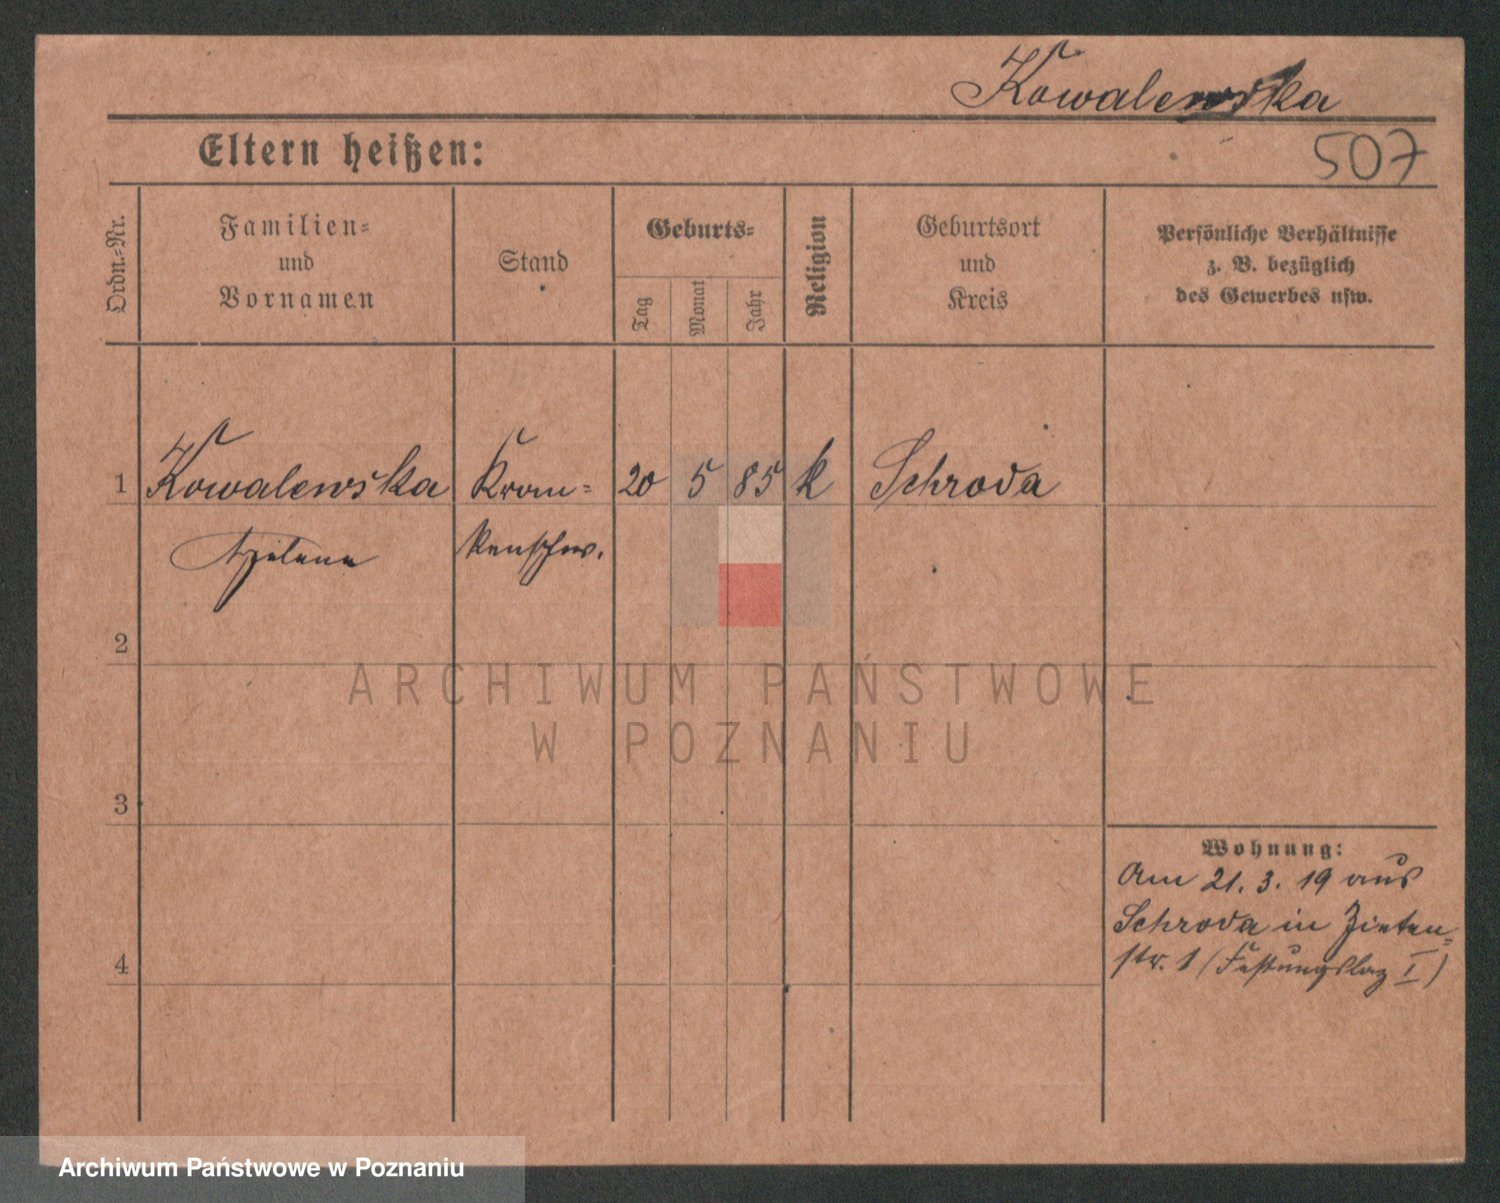 Kowalewska
Eltern heißen:
507
Ordn.-Nr.
Familien-
und
Vornamen
Stand
Geburts-
Tag
Monat
Jahr
Religion
Geburtsort
und
Kreis
Persönliche Verhältnisse
z. B. bezüglich
des Gewerbes usw.
1
Kowalewska
Kran-
20
5
85
k
Schroda
Helene
kenschw.
2
ARCHIWUM PAŃSTWOWE
W POZNANIU
3
Wohnung:
Am 21. 3. 19 aus
Schroda in Zieten-
str. 1 (Festungslaz I)
4
Archiwum Państwowe w Poznaniu